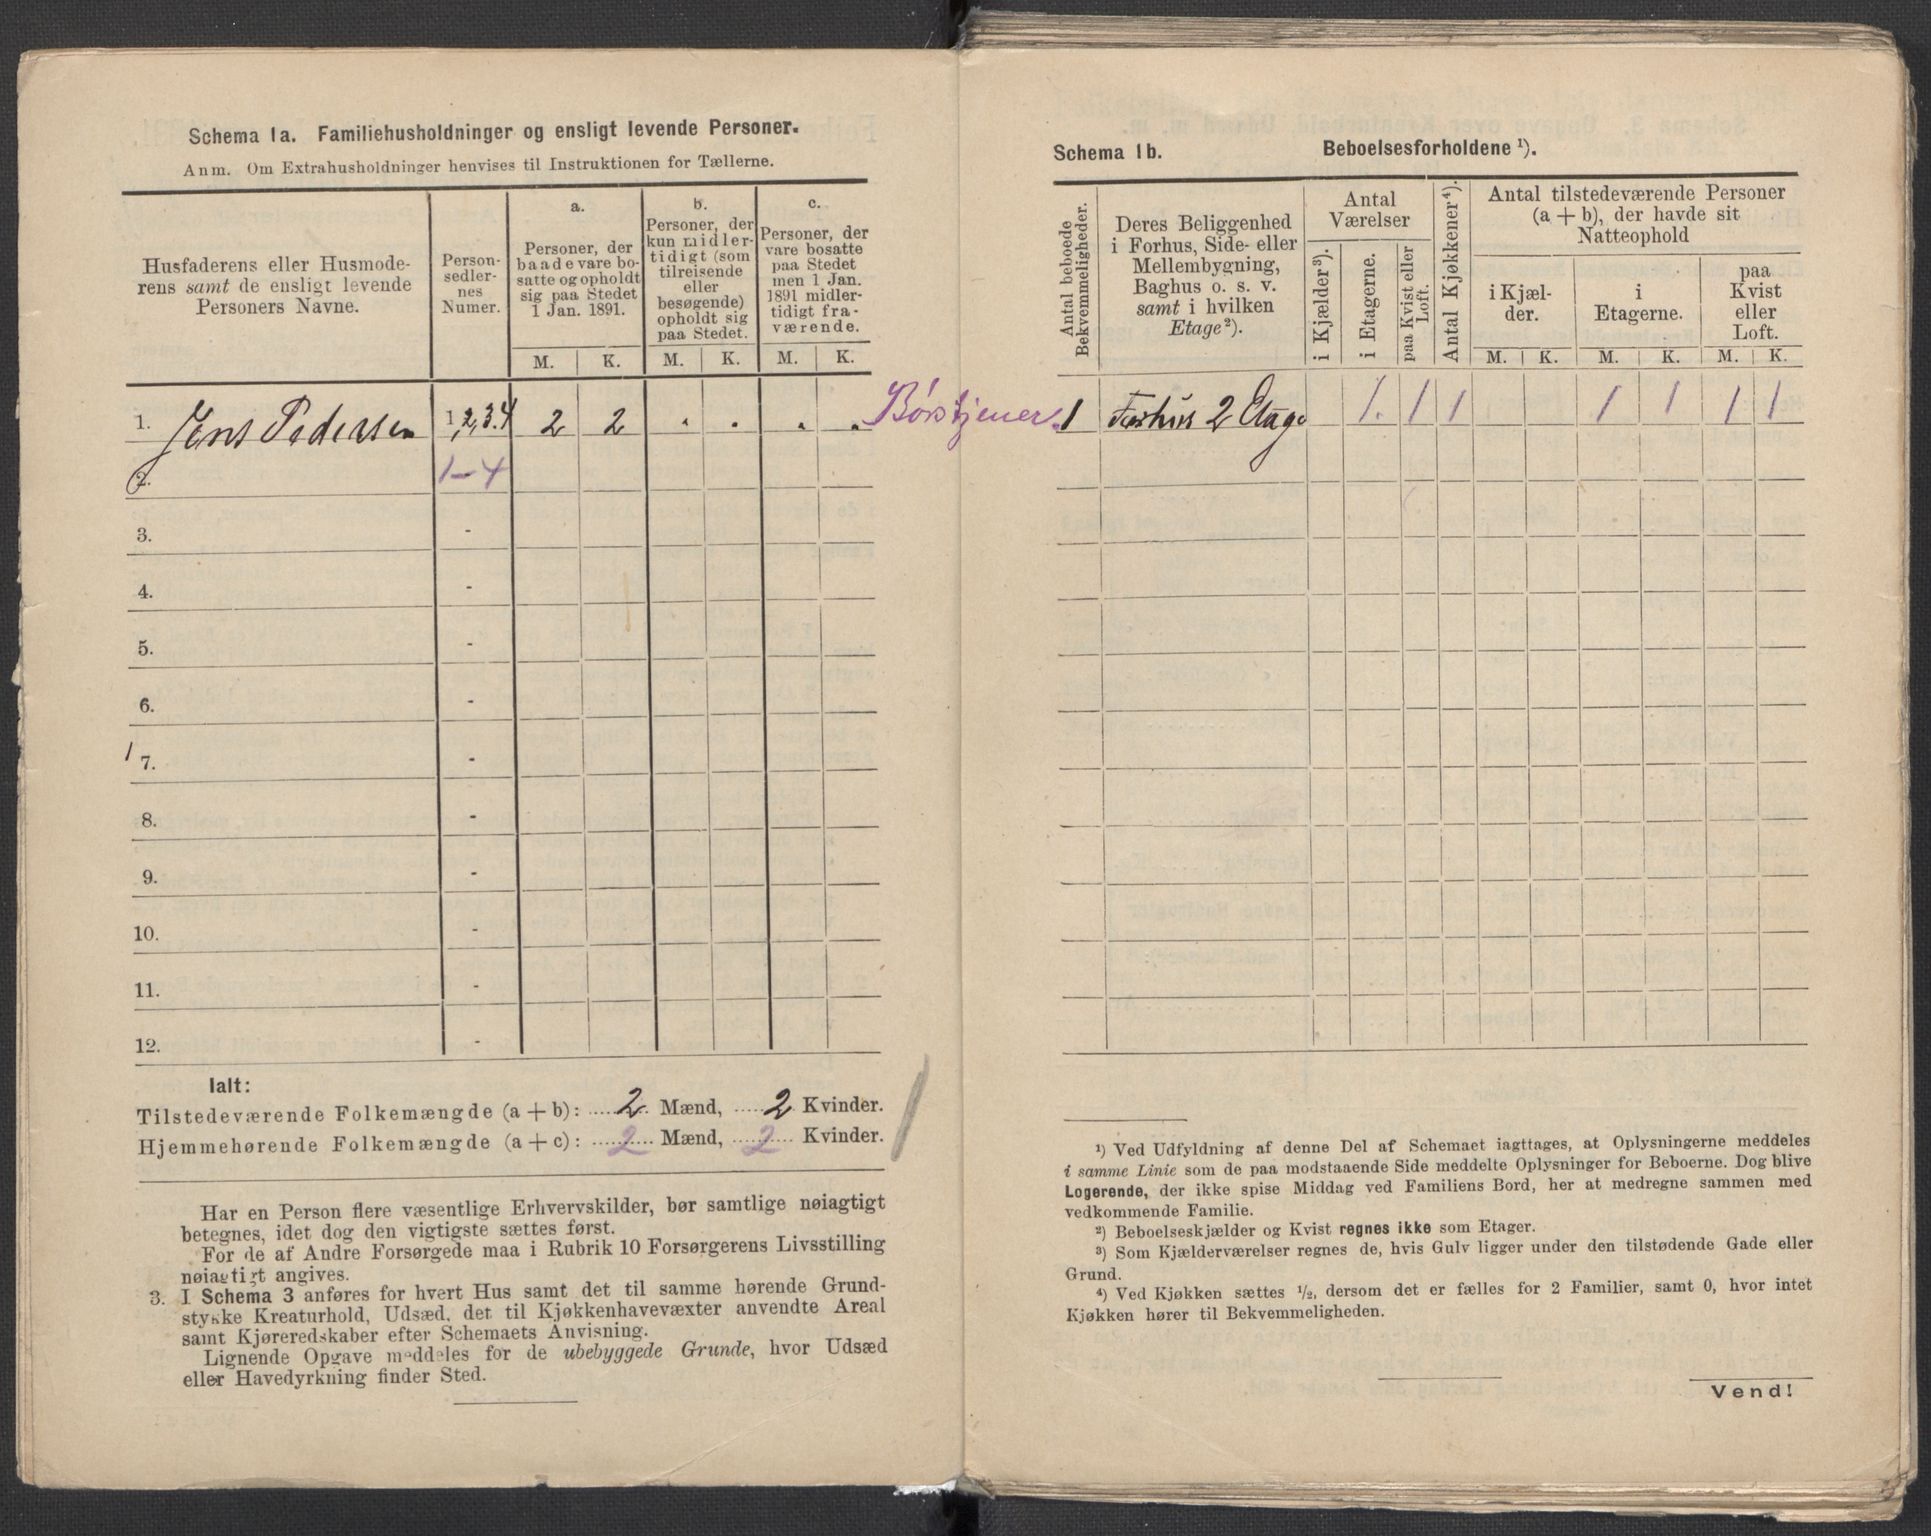 Schema 1a. Familiehusholdninger og ensligt levende Personer.
Anm. Om Extrahusholdninger henvises til Instruktionen for Tællerne.
Husfaderens eller Husmode-
rens samt de ensligt levende
Personers Navne.
Person-
sedler-
nes
Numer.
a.
Personer, der
baade vare bo-
satte og opholdt
sig paa Stedet
1 Jan. 1891.
b.
Personer, der
kun midler-
tidigt (som
tilreisende
eller
besøgende)
opholdt sig
paa Stedet.
c.
Personer, der
vare bosatte
paa Stedet
men 1 Jan.
1891 midler-
tidigt fra-
værende.
M. K. M. K. M. K.
1. Jens Pedersen 1,2,3.4 2 2 . . . . Børstjener
2. 1-4
3. -
4. -
5. -
6. -
1 7. -
8. -
9. -
10. -
11. -
12. -
Ialt:
Tilstedeværende Folkemængde (a + b): 2 Mænd, 2 Kvinder.
Hjemmehørende Folkemængde (a + c): 2 Mænd, 2 Kvinder.
Har en Person flere væsentlige Erhvervskilder, bør samtlige nøiagtigt
betegnes, idet dog den vigtigste sættes først.
For de af Andre Forsørgede maa i Rubrik 10 Forsørgerens Livsstilling
nøiagtigt angives.
3. I Schema 3 anføres for hvert Hus samt det til samme hørende Grund-
stykke Kreaturhold, Udsæd, det til Kjøkkenhavevæxter anvendte Areal
samt Kjøreredskaber efter Schemaets Anvisning.
Lignende Opgave meddeles for de ubebyggede Grunde, hvor Udsæd
eller Havedyrkning finder Sted.
Schema 1b. Beboelsesforholdene ¹).
Antal beboede
Bekvemmeligheder.
Deres Beliggenhed
i Forhus, Side- eller
Mellembygning,
Baghus o. s. v.
samt i hvilken
Etage ²).
Antal
Værelser
i Kjælder ³).
i Etagerne.
paa Kvist eller
Loft.
Antal Kjøkkener ⁴).
Antal tilstedeværende Personer
(a + b), der havde sit
Natteophold
i Kjæl-
der.
i
Etagerne.
paa
Kvist
eller
Loft.
M. K. M. K. M. K.
1 Forhus 2 Etage 1. 1 1 1 1 1 1
¹) Ved Udfyldning af denne Del af Schemaet iagttages, at Oplysningerne meddeles
i samme Linie som de paa modstaaende Side meddelte Oplysninger for Beboerne. Dog blive
Logerende, der ikke spise Middag ved Familiens Bord, her at medregne sammen med
vedkommende Familie.
²) Beboelseskjælder og Kvist regnes ikke som Etager.
³) Som Kjælderværelser regnes de, hvis Gulv ligger under den tilstødende Gade eller
Grund.
⁴) Ved Kjøkken sættes ½, dersom det er fælles for 2 Familier, samt 0, hvor intet
Kjøkken hører til Bekvemmeligheden.
Vend!